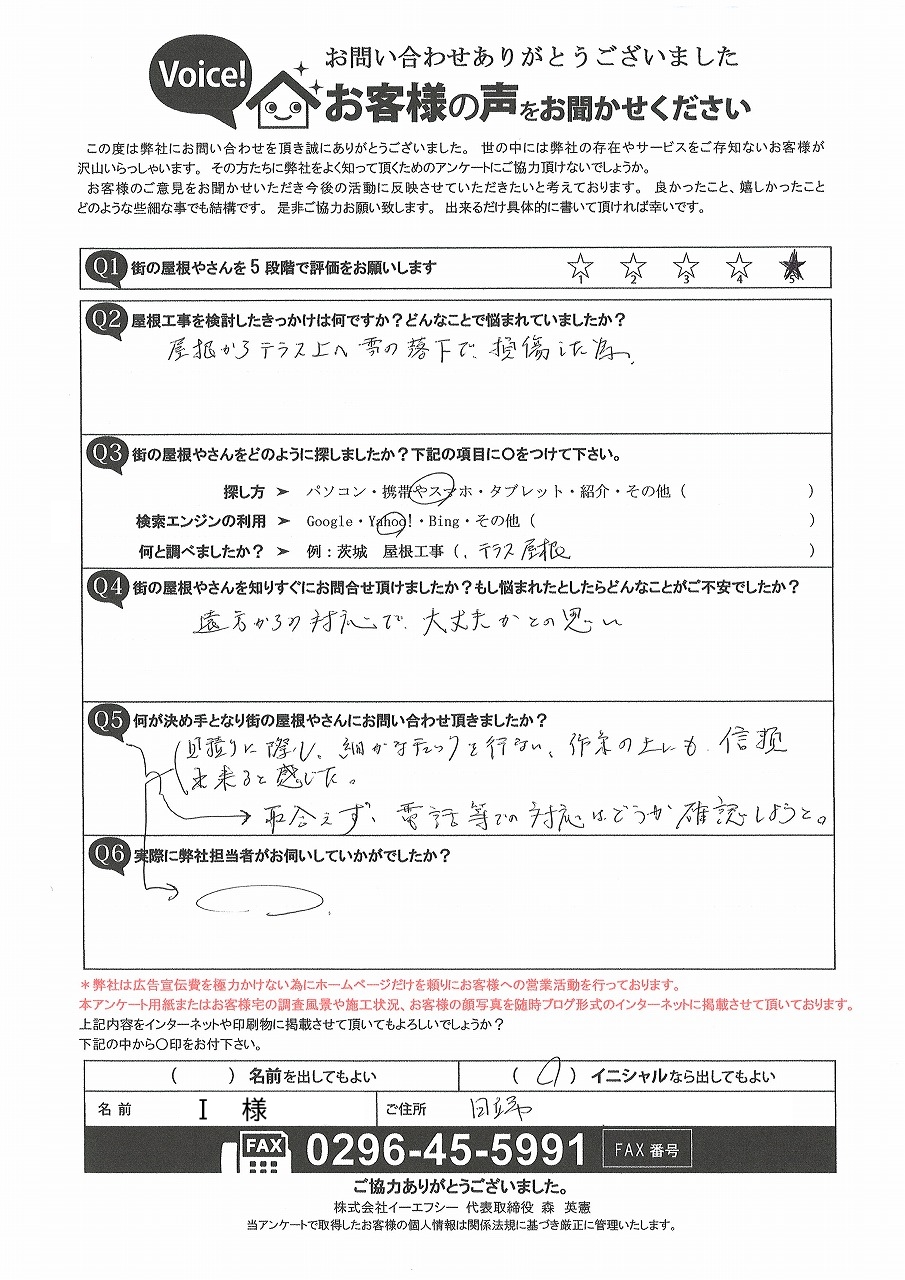 Voice!
お問い合わせありがとうございました
お客様の声をお聞かせください
この度は弊社にお問い合わせを頂き誠にありがとうございました。 世の中には弊社の存在やサービスをご存知ないお客様が
沢山いらっしゃいます。 その方たちに弊社をよく知って頂くためのアンケートにご協力頂けないでしょうか。
お客様のご意見をお聞かせいただき今後の活動に反映させていただきたいと考えております。 良かったこと、嬉しかったこと
どのような些細な事でも結構です。 是非ご協力お願い致します。 出来るだけ具体的に書いて頂ければ幸いです。
Q1 街の屋根やさんを5段階で評価をお願いします ☆1 ☆2 ☆3 ☆4 ★5
Q2 屋根工事を検討したきっかけは何ですか？どんなことで悩まれていましたか？
屋根からテラス上へ雪の落下で、損傷した為。
Q3 街の屋根やさんをどのように探しましたか？下記の項目に〇をつけて下さい。
探し方 ➢ パソコン・携帯やスマホ・タブレット・紹介・その他（ ）
検索エンジンの利用 ➢ Google・Yahoo!・Bing・その他（ ）
何と調べましたか？ ➢ 例：茨城 屋根工事（、テラス屋根 ）
Q4 街の屋根やさんを知りすぐにお問合せ頂けましたか？もし悩まれたとしたらどんなことがご不安でしたか？
遠方からの対応で、大丈夫かとの思い
Q5 何が決め手となり街の屋根やさんにお問い合わせ頂きましたか？
見積りに際し、細かなチェックを行ない、作業の上にも、信頼
出来ると感じた。
取合えず、電話等での対応はどうか確認しようと。
Q6 実際に弊社担当者がお伺いしていかがでしたか？
＊弊社は広告宣伝費を極力かけない為にホームページだけを頼りにお客様への営業活動を行っております。
本アンケート用紙またはお客様宅の調査風景や施工状況、お客様の顔写真を随時ブログ形式のインターネットに掲載させて頂いております。
上記内容をインターネットや印刷物に掲載させて頂いてもよろしいでしょうか？
下記の中から〇印をお付下さい。
（ ）名前を出してもよい （ 〇 ）イニシャルなら出してもよい
名前 I 様 ご住所 日立市
FAX 0296-45-5991 FAX 番号
ご協力ありがとうございました。
株式会社イーエフシー 代表取締役 森 英憲
当アンケートで取得したお客様の個人情報は関係法規に基づき厳正に管理いたします。